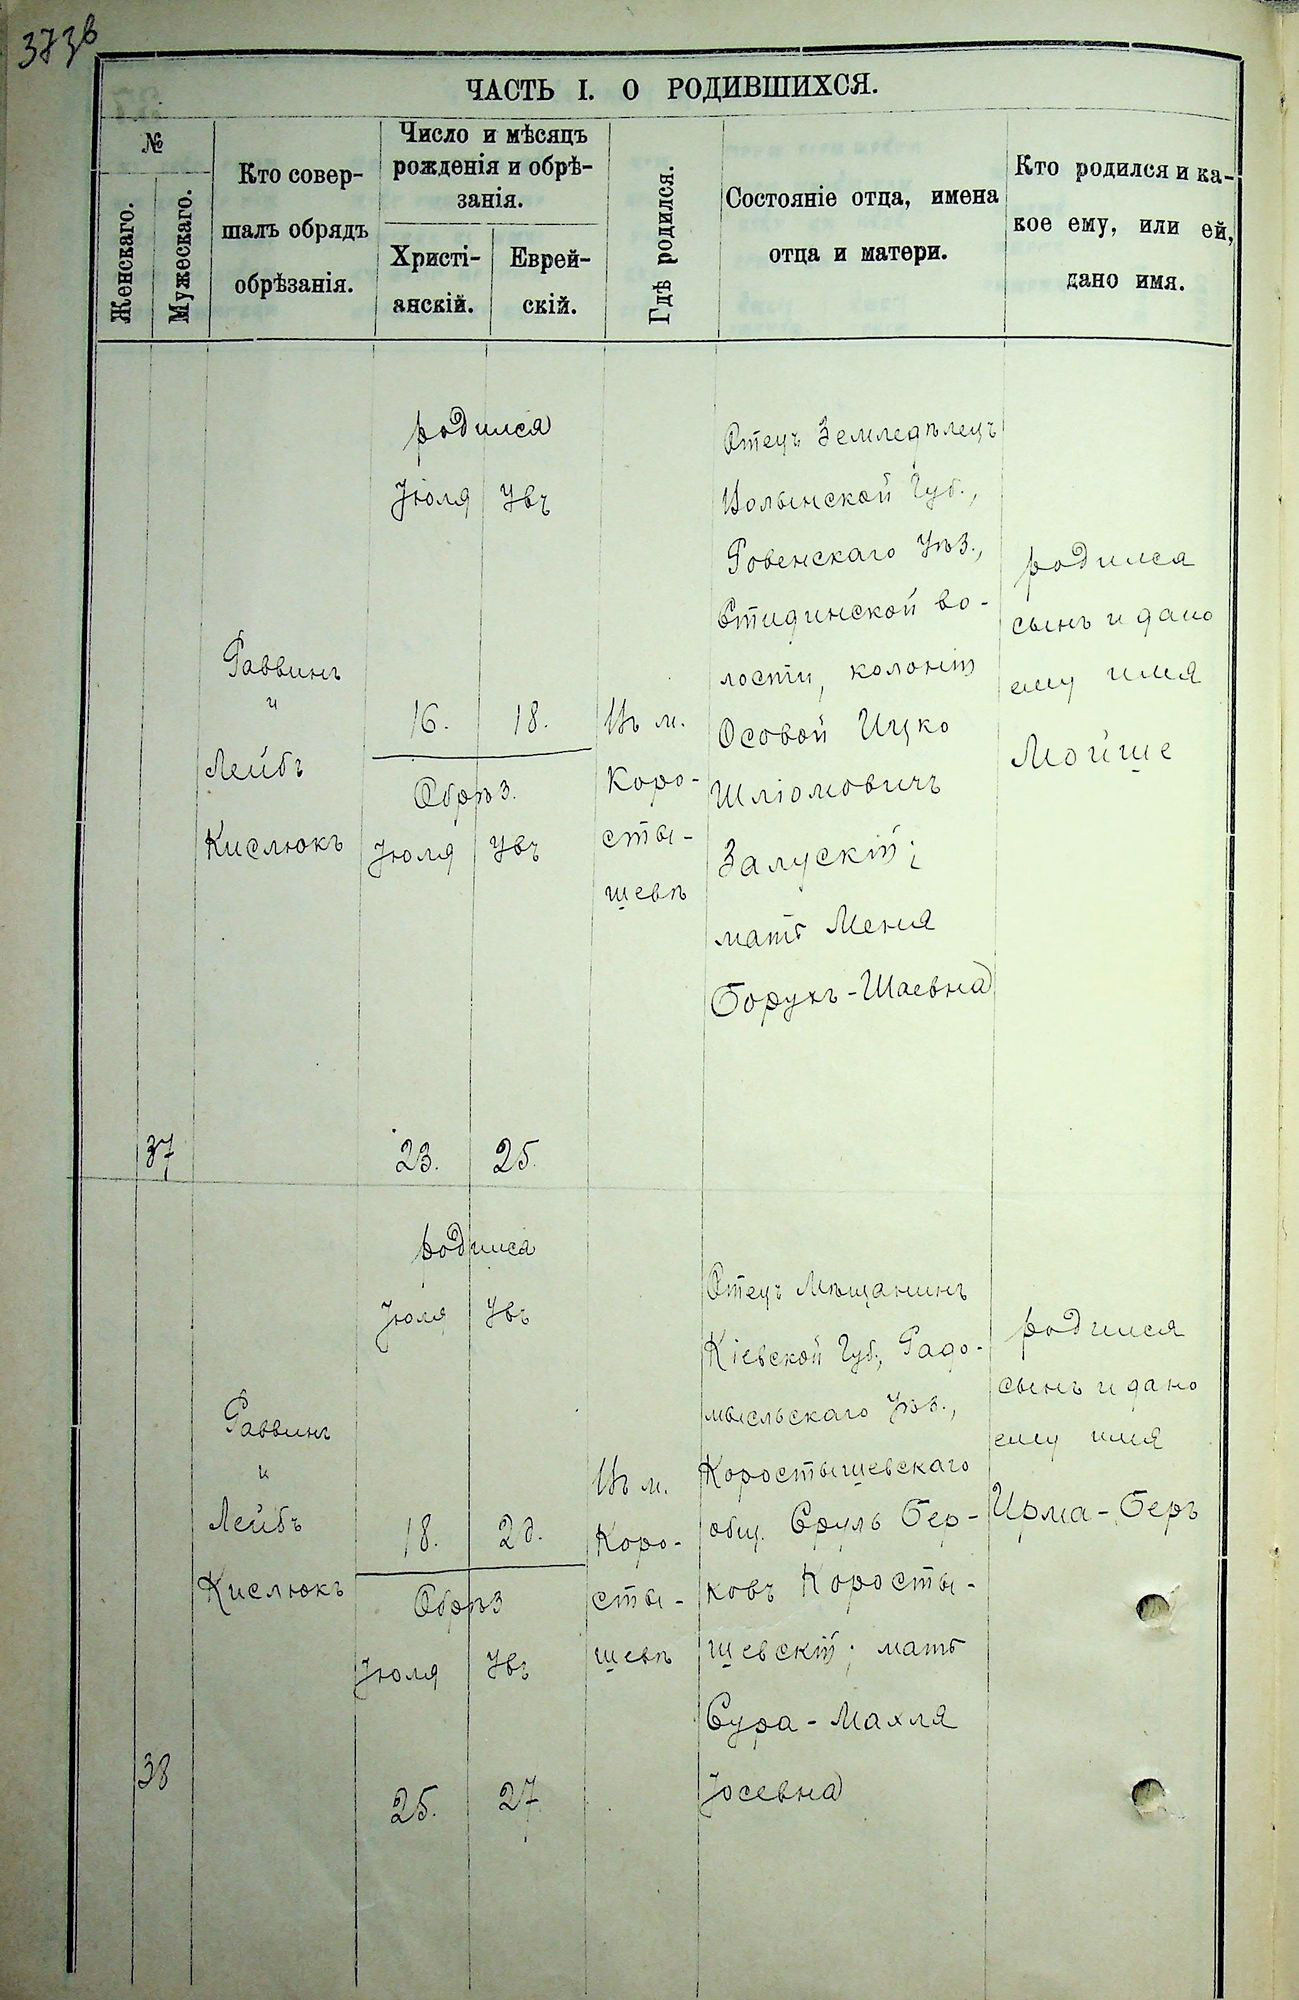 373 в
ЧАСТЬ I. О РОДИВШИХСЯ.
№
Женскаго.
Мужескаго.
Кто совер-
шалъ обрядъ
обрѣзанія.
Число и мѣсяцъ
рожденія и обрѣ-
занія.
Христі-
анскій.
Еврей-
скій.
Гдѣ родился.
Состояніе отца, имена
отца и матери.
Кто родился и ка-
кое ему, или ей,
дано имя.
37
Раввинъ
и
Лейбъ
Кислюкъ
родился
Іюля Увъ
16. 18.
Обрѣз.
Іюля Увъ
23. 25.
Въ м.
Коро-
сты-
шевѣ
Отецъ Земледѣлецъ
Волынской Губ.,
Ровенскаго Уѣз.,
Стидинской во-
лости, колоніи
Осовой Ицко
Шліомовичъ
Залускій;
мать Меня
Борухъ-Шаевна
родился
сынъ и дано
ему имя
Мойше
38
Раввинъ
и
Лейбъ
Кислюкъ
родился
Іюля Увъ
18. 20.
Обрѣз
Іюля Увъ
25. 27
Въ м.
Коро-
сты-
шевѣ
Отецъ Мѣщанинъ
Кіевской Губ., Радо-
мысльскаго Уѣз.,
Коростышевскаго
общ. Сруль Бер-
ковъ Коросты-
шевскій; мать
Сура-Махля
Іосевна
родился
сынъ и дано
ему имя
Ирма-Беръ